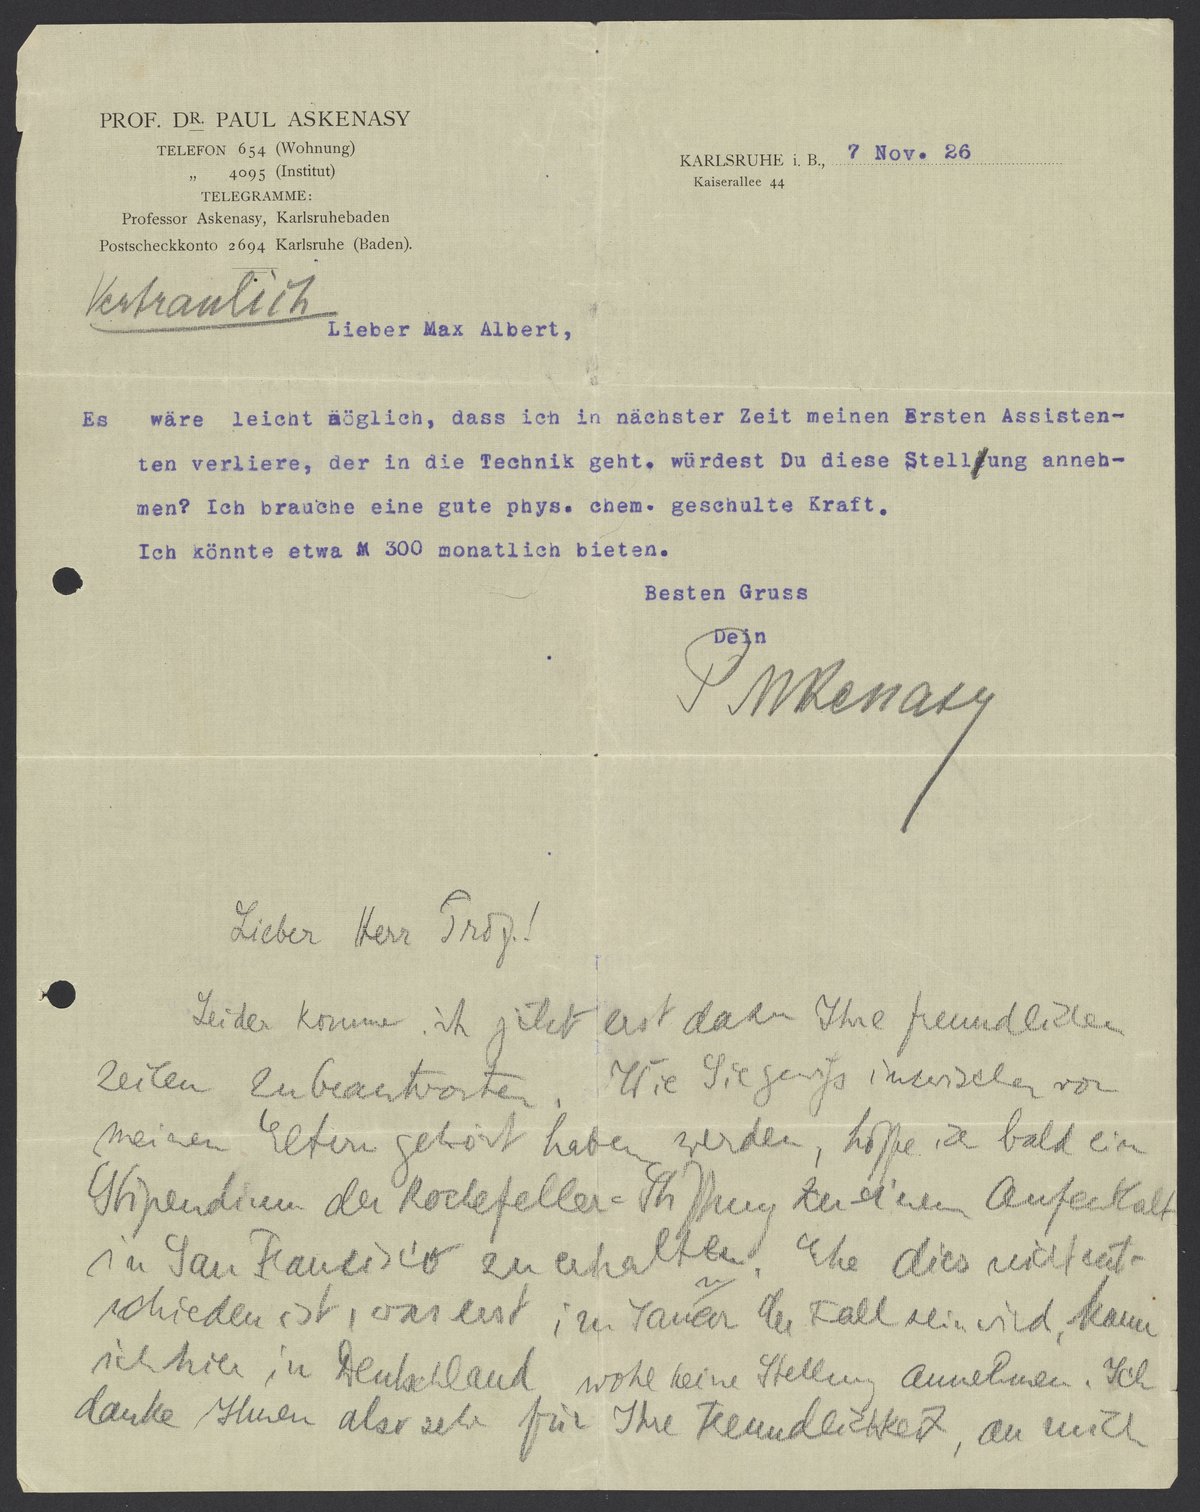 PROF. DR. PAUL ASKENASY
TELEFON 654 (Wohnung)
„ 4095 (Institut)
TELEGRAMME:
Professor Askenasy, Karlsruhebaden
Postscheckkonto 2694 Karlsruhe (Baden).
KARLSRUHE i. B., 7 Nov. 26
Kaiserallee 44
Vertraulich
Lieber Max Albert,
Es wäre leicht möglich, dass ich in nächster Zeit meinen Ersten Assisten-
ten verliere, der in die Technik geht. würdest Du diese Stellung anneh-
men? Ich brauche eine gute phys. chem. geschulte Kraft.
Ich könnte etwa M 300 monatlich bieten.
Besten Gruss
Dein
P Askenasy
Lieber Herr Prof.!
Leider komme ich jetzt erst dazu Ihre freundlichen
Zeilen zu beantworten. Wie Sie gewiß inzwischen von
meinen Eltern gehört haben werden, hoffe ich bald ein
Stipendium der Rockefeller-Stiftung zu einem Aufenthalt
in San Francisco zu erhalten. Ehe dies nicht ent-
schieden ist, was erst im Januar der Fall sein wird, kann
ich hier in Deutschland wohl keine Stellung annehmen. Ich
danke Ihnen also sehr für Ihre Freundlichkeit, an mich